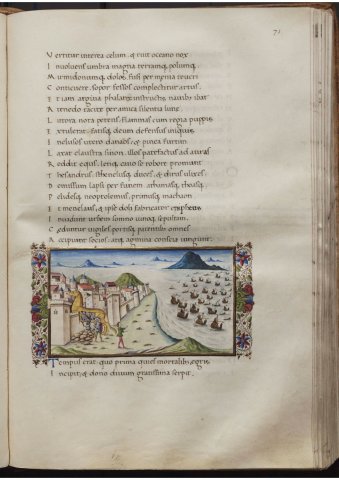 71
Vertitur interea celum, & ruit oceano nox
Inuoluens umbra magna terramq; polumq;
Mirmidonumq; dolos. fusi per menia teucri
Conticuere. sopor fessos complectitur artus.
Et iam argiua phalanx instructis nauibus ibat
A tenedo tacite per amica silentia lune
Litora nota petens. flammas cum regia puppis
Extulerat. fatisq; deum defensus iniquis
Inclusos utero danaos & pinea furtim
Laxat claustra sinon. illos patefactus ad auras
Reddit equus. letiq; cauo se robore promunt
Thesandrus sthenelusq; duces. & dirus ulixes
Demissum lapsi per funem. athamasq; thoasq;
Pelidesq; neoptolemus. primusq; machaon
Et menelaus, & ipse doli fabricator
Inuadunt urbem somno uinoq; sepultam.
Ceduntur uigiles portisq; patentibus omnes
Accipiunt socios. atq; agmina conscia iungunt.
Tempus erat. quo prima quies mortalibus egris
Incipit, & dono diuum gratissima serpit.